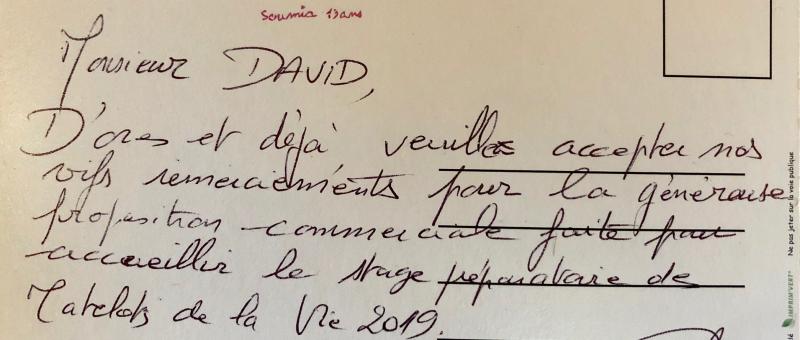 Soumia 13 ans
Monsieur DAVID,
D'ores et déjà veuillez accepter nos
vifs remerciements pour la généreuse
proposition commerciale faite pour
accueillir le stage préparatoire de
Matelots de la Vie 2019.
Ne pas jeter sur la voie publique
IMPRIM'VERT®